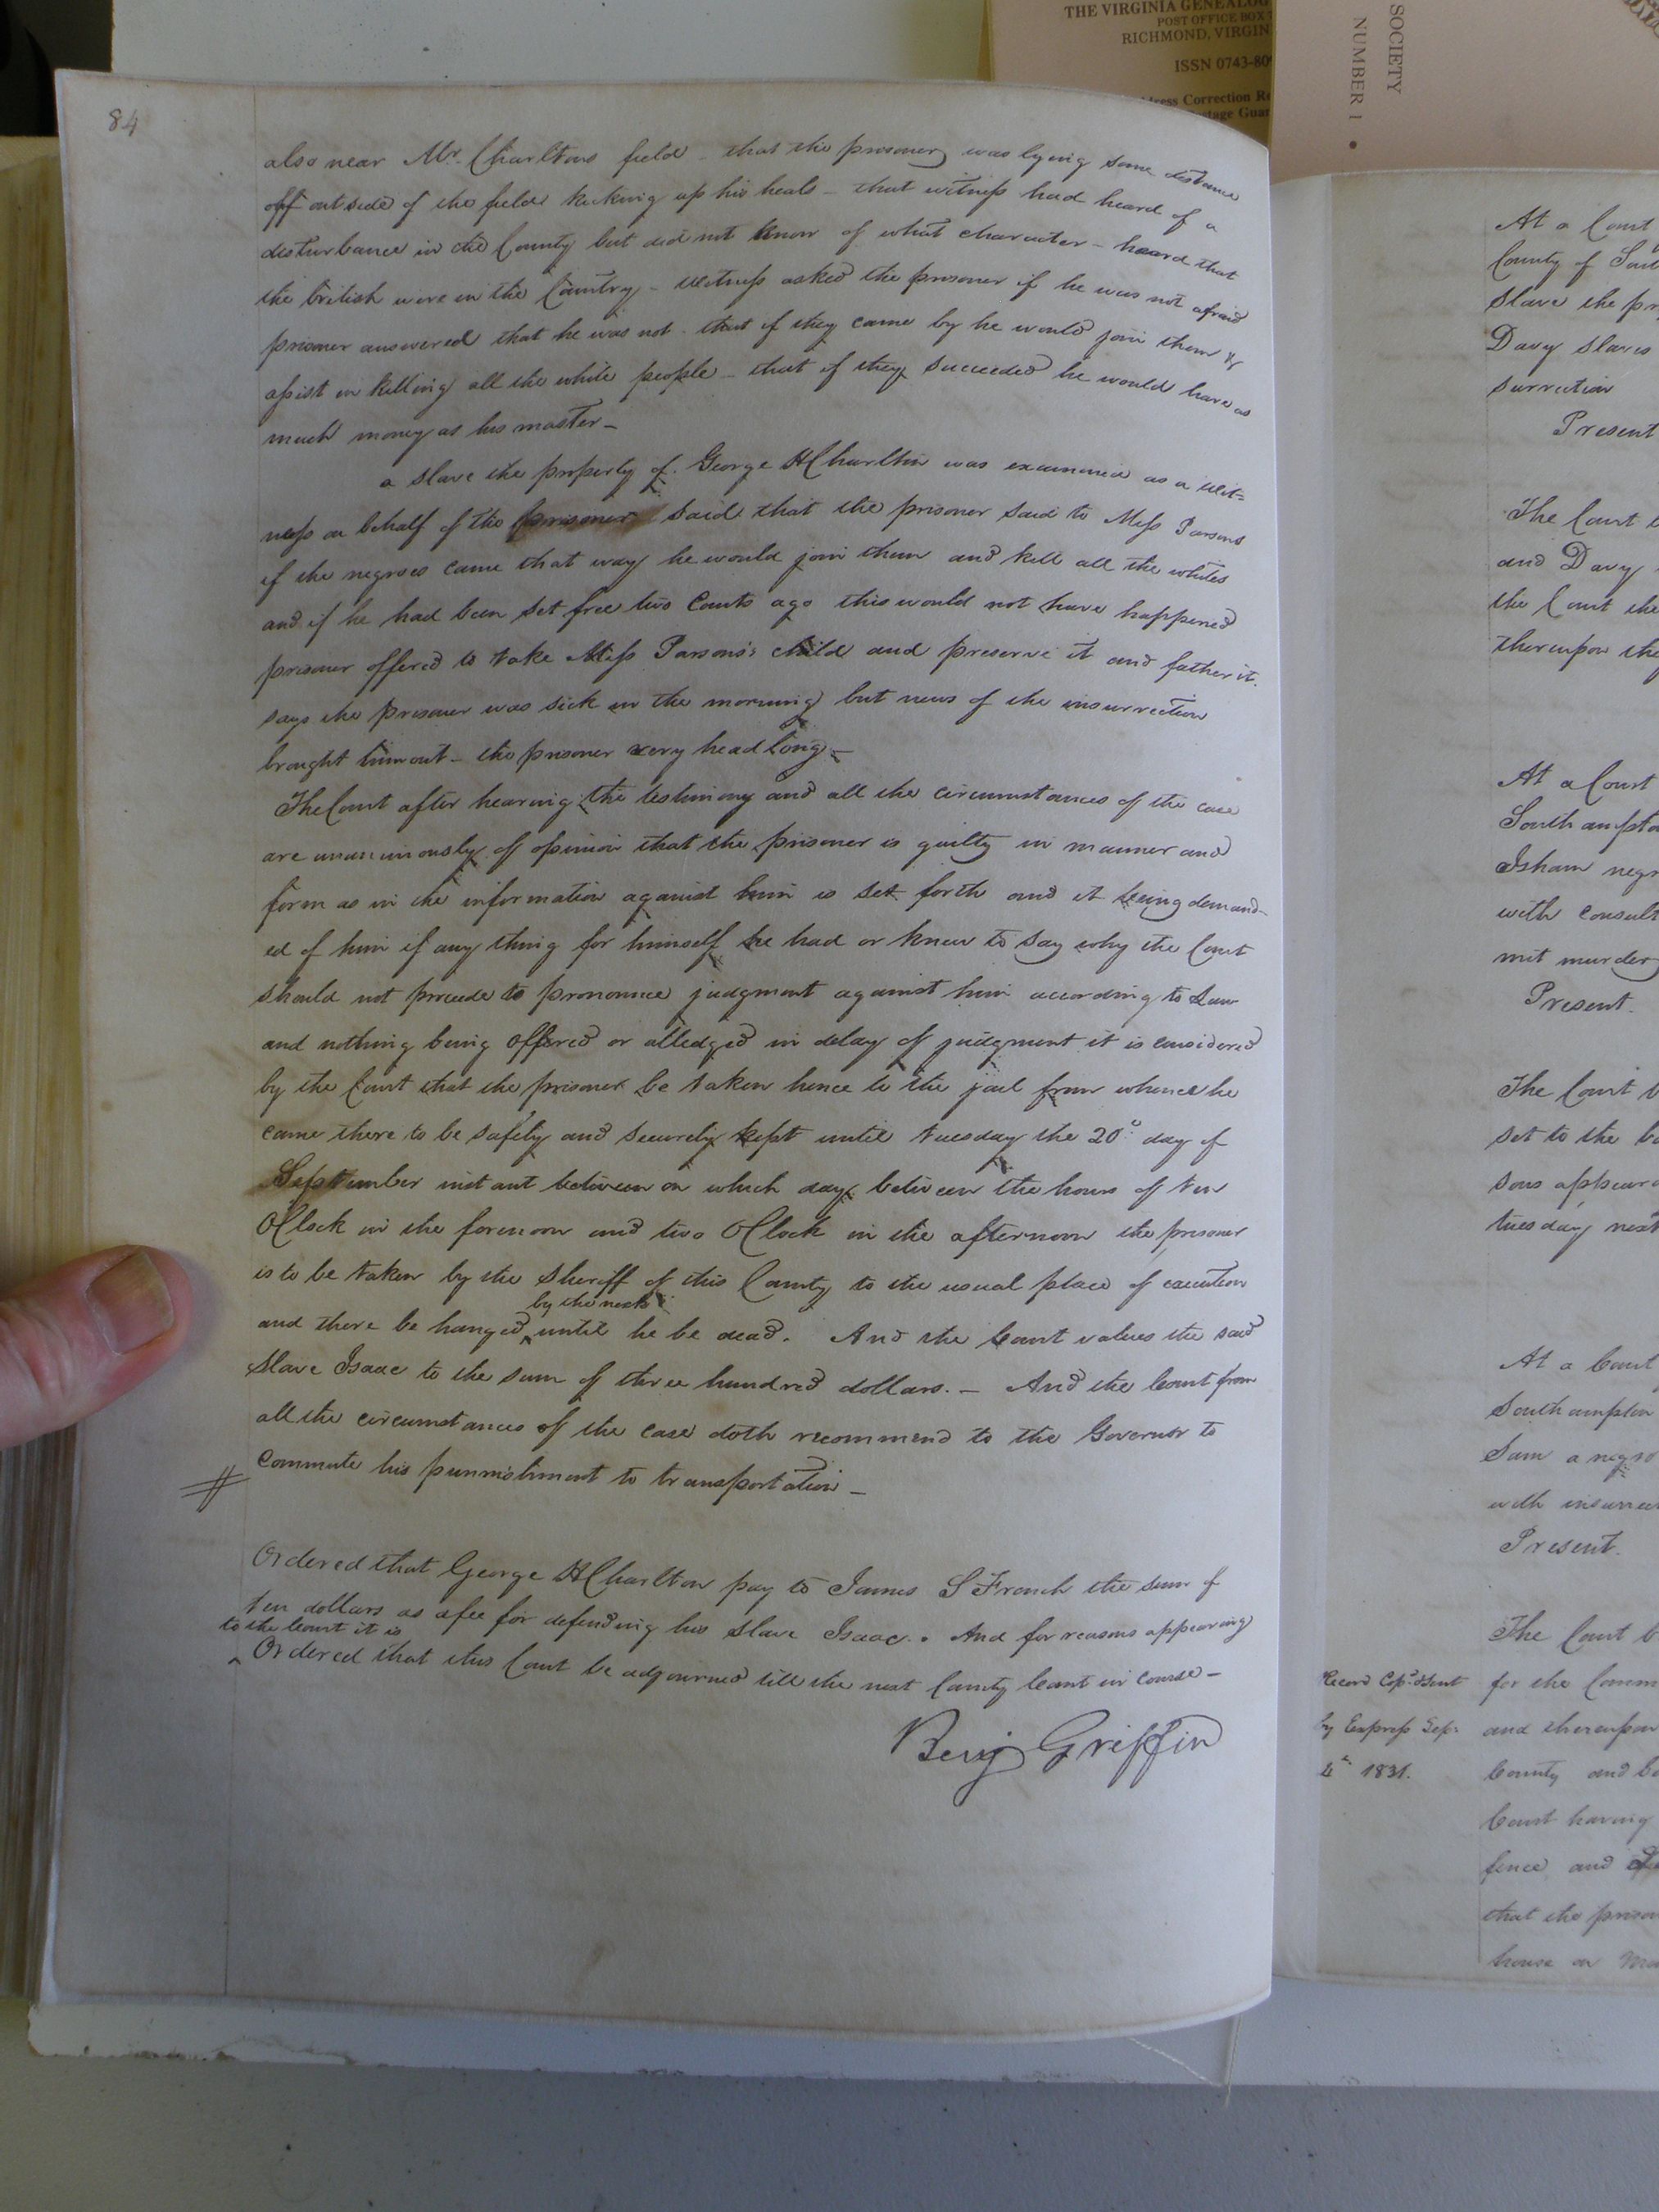 THE VIRGINIA GENEALOG
POST OFFICE BOX
RICHMOND, VIRGIN
ISSN 0743-809
dress Correction Re
stage Guar
SOCIETY
NUMBER 1 •
84
also near Mr. Charltons field - that the prisoner was lying some distance
off outside of the field kicking up his heals - that witness had heard of a
disturbance in the County but did not know of what character - heard that
the British were in the County - witness asked the prisoner if he was not afraid
prisoner answered that he was not - that if they came by he would join them &
assist in killing all the white people - that if they succeeded he would have as
much money as his master -
a slave the property of George H Charlton was examined as a wit=
ness on behalf of the prisoner said that the prisoner said to Mess Parsons
if the negroes came that way he would join them and kill all the whites
and if he had been set free two Courts ago this would not have happened
prisoner offered to take Mess Parsons's child and preserve it and father it.
says the prisoner was sick in the morning but news of the insurrection
brought him out - the prisoner very head long -
The Court after hearing the testimony and all the circumstances of the case
are unanimously of opinion that the prisoner is guilty in manner and
form as in the information against him is set forth and it being demand-
ed of him if any thing for himself he had or knew to say why the Court
should not procede to pronounce judgment against him according to Law
and nothing being offered or alledged in delay of judgment it is considered
by the Court that the prisoner be taken hence to the jail from whence he
came there to be safely and securely kept until tuesday the 20th day of
September instant between on which day between the hours of ten
OClock in the forenoon and two OClock in the afternoon the prisoner
is to be taken by the Sheriff of this County to the usual place of execution
by the neck
and there be hanged ^ until he be dead. And the Court values the said
slave Isaac to the sum of three hundred dollars. - And the Court from
all the circumstances of the case doth recommend to the Governor to
commute his punnishment to transportation -
Ordered that George H Charlton pay to James S French the sum of
ten dollars as a fee for defending his slave Isaac. And for reasons appearing
to the Court it is
^ Ordered that this Court be adjourned till the next County Court in course -
Benj Griffin
At a Court
County of Sout
slave the pr
Davy slaves
surrection
Present
The Court
and Davy
the Court the
thereupon the
At a Court
Southampto
Isham negr
with consult
mit murder
Present.
The Court
set to the ba
sons appear
tuesday next
At a Court
Southampton
Sam a negro
with insurrec
Present.
The Court
Record Copd & sent
for the Comm
by Express Sep:
and thereupon
1831.
County and
Court having
fence and
that the prison
house on Mon